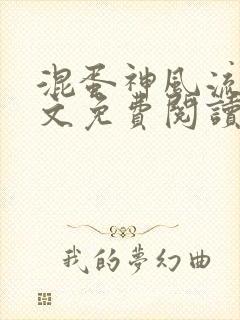 混蛋神風流
文免費閱讀
我的夢幻曲